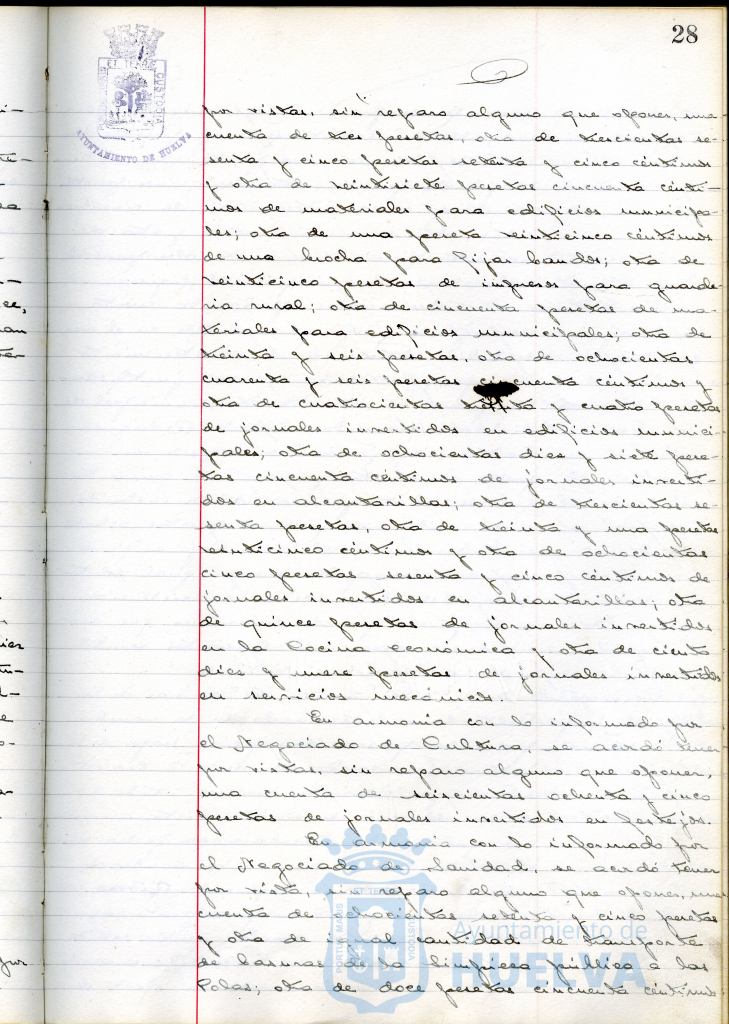 28
PORTUS MARIS ET TERRAE CUSTODIA
AYUNTAMIENTO DE HUELVA
por vistas, sin reparo alguno que oponer, una
cuenta de tres pesetas, otra de trescientas se-
senta y cinco pesetas setenta y cinco céntimos
y otra de veintisiete pesetas cincuenta cénti-
mos de materiales para edificios municipa-
les; otra de una peseta veinticinco céntimos
de una brocha para fijar bandos; otra de
veinticinco pesetas de impresos para guarde-
ria rural; otra de cincuenta pesetas de ma-
teriales para edificios municipales; otra de
treinta y seis pesetas, otra de ochocientas
cuarenta y seis pesetas cincuenta céntimos y
otra de cuatrocientas y cuatro pesetas
de jornales invertidos en edificios munici-
pales; otra de ochocientas dies y siete pese-
tas cincuenta céntimos de jornales inverti-
dos en alcantarillas; otra de trescientas se-
senta pesetas, otra de treinta y una pesetas
veinticinco céntimos y otra de ochocientas
cinco pesetas sesenta y cinco céntimos de
jornales invertidos en alcantarillas; otra
de quince pesetas de jornales invertidos
en la Cocina económica y otra de ciento
dies y nueve pesetas de jornales invertidos
en servicios mecánicos.
En armonia con lo informado por
el Negociado de Cultura, se acordó tener
por vistas, sin reparo alguno que oponer,
una cuenta de seiscientas ochenta y cinco
pesetas de jornales invertidos en festejos.
En armonia con lo informado por
el Negociado de Sanidad, se acordó tener
por vista, sin reparo alguno que oponer, una
cuenta de ochocientas setenta y cinco pesetas
y otra de igual cantidad de transporte
de basuras de la limpieza pública a las
Colas; otra de doce pesetas cincuenta céntimos
Ayuntamiento de
HUELVA